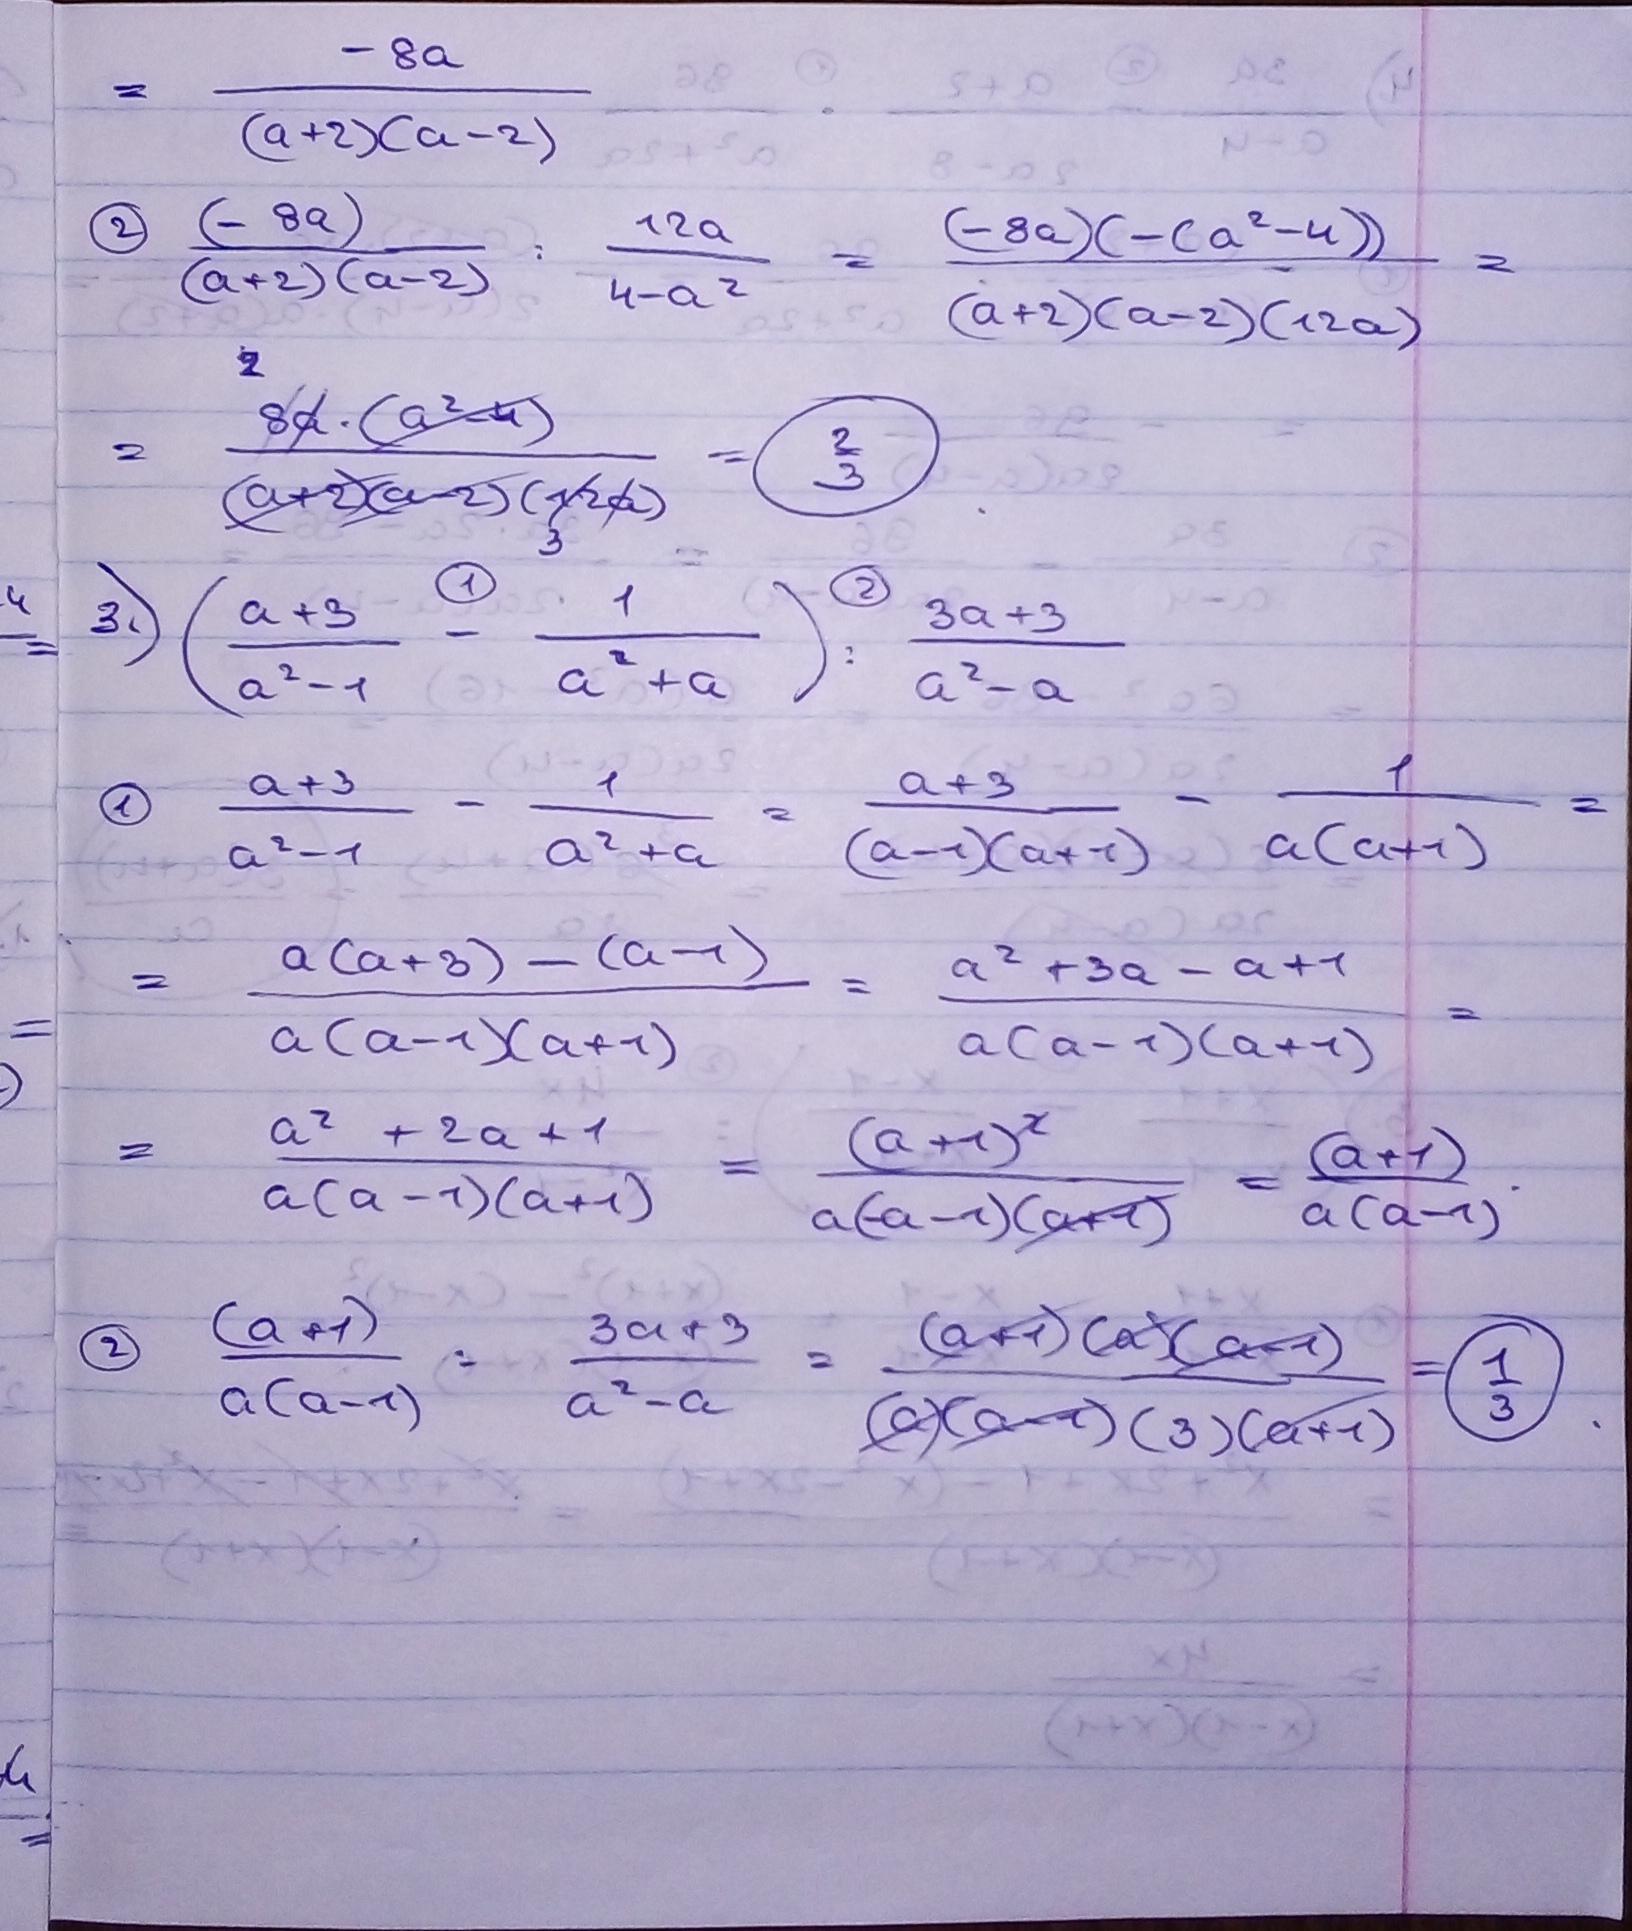 = -8a / (a+2)(a-2)
② (-8a) / (a+2)(a-2) : 12a / 4-a² = (-8a)(-(a²-4)) / (a+2)(a-2)(12a) =
2
= 8a·(a²-4) / (a+2)(a-2)(12a) = 2/3
3
3.) ( a+3 / a²-1 ① - 1 / a²+a ) ② : 3a+3 / a²-a
① a+3 / a²-1 - 1 / a²+a = a+3 / (a-1)(a+1) - 1 / a(a+1) =
= a(a+3)-(a-1) / a(a-1)(a+1) = a²+3a-a+1 / a(a-1)(a+1) =
= a²+2a+1 / a(a-1)(a+1) = (a+1)² / a(a-1)(a+1) = (a+1) / a(a-1).
② (a+1) / a(a-1) : 3a+3 / a²-a = (a+1)(a)(a-1) / (a)(a-1)(3)(a+1) = 1/3.